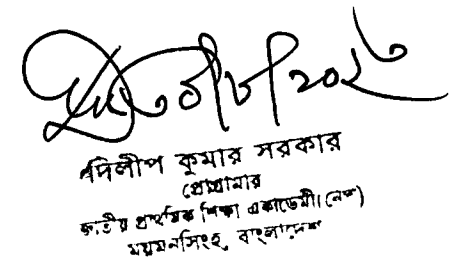 দিলীপ কুমার সরকার
প্রোগ্রামার
জাতীয় প্রাথমিক শিক্ষা একাডেমী (নেপ)
ময়মনসিংহ, বাংলাদেশ